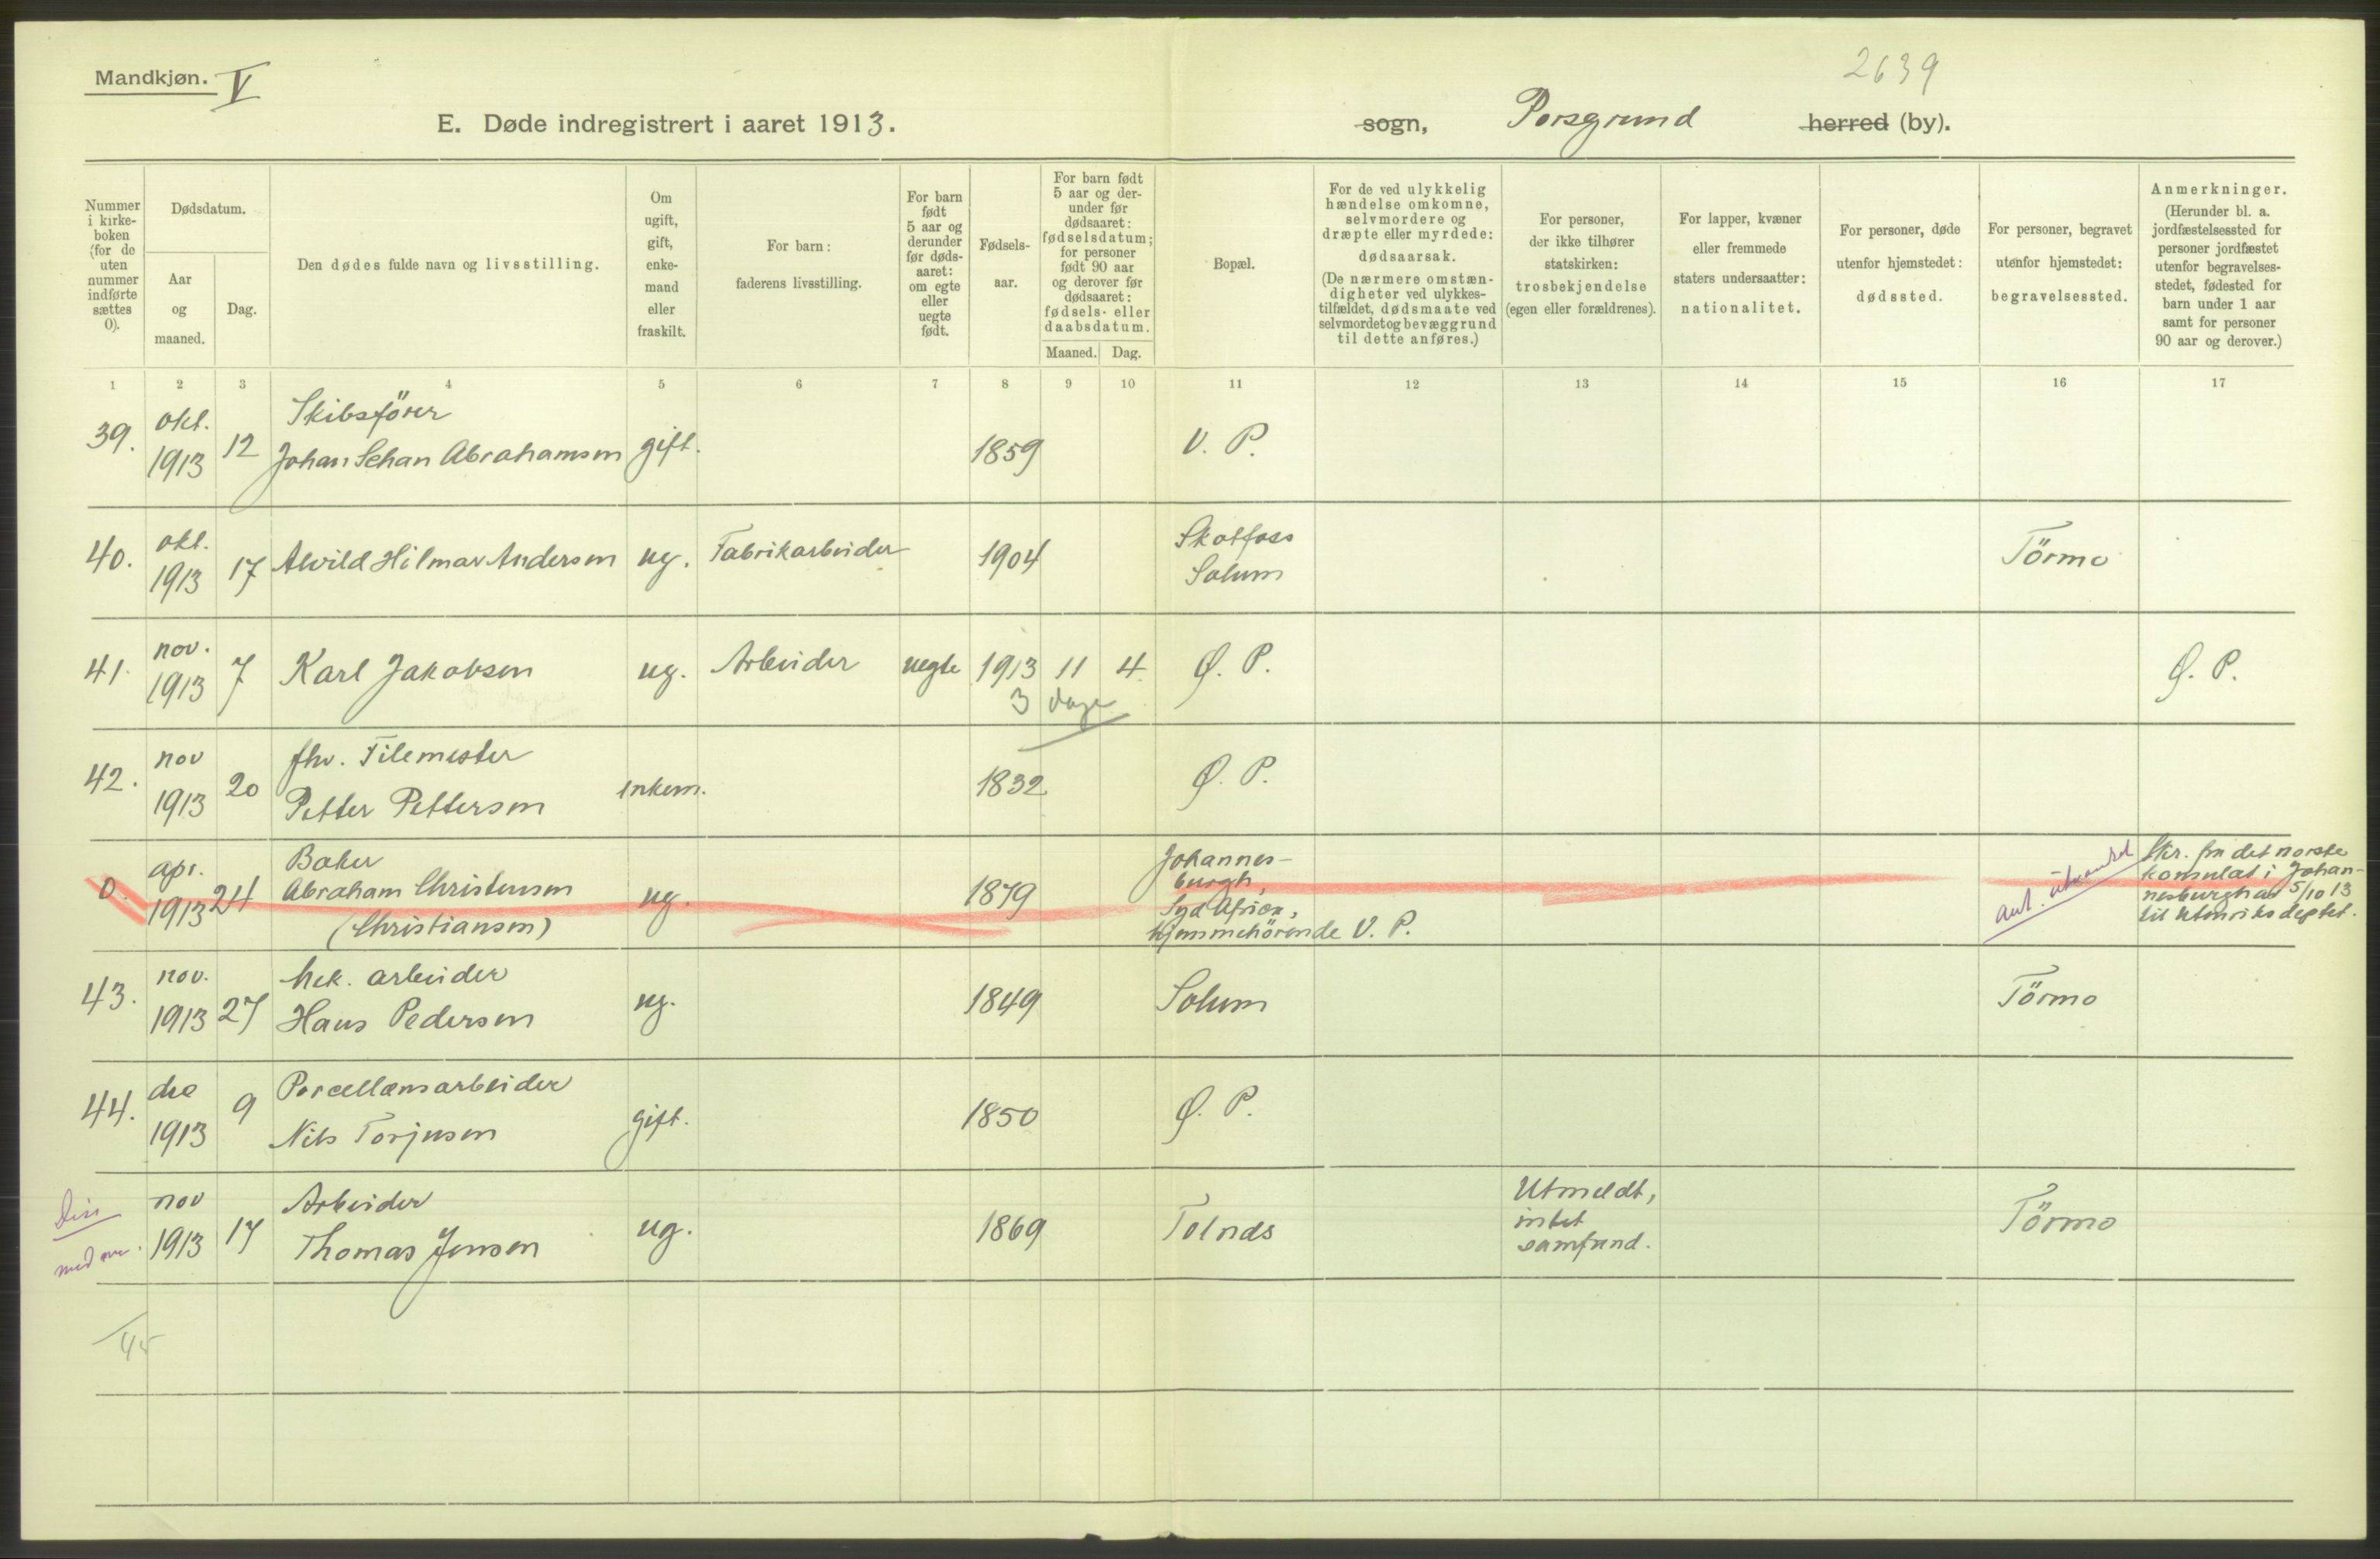 Mandkjøn. V
2639
E. Døde indregistrert i aaret 1913.
sogn, Porsgrund herred (by).
Nummer
i kirke-
boken
(for de
uten
nummer
indførte
sættes
0).
Dødsdatum.
Aar
og
maaned.
Dag.
Den dødes fulde navn og livsstilling.
Om
ugift,
gift,
enke-
mand
eller
fraskilt.
For barn:
faderens livsstilling.
For barn
født
5 aar og
derunder
før døds-
aaret:
om egte
eller
uegte
født.
Fødsels-
aar.
For barn født
5 aar og der-
under før
dødsaaret:
fødselsdatum;
for personer
født 90 aar
og derover før
dødsaaret:
fødsels- eller
daabsdatum.
Maaned. Dag.
Bopæl.
For de ved ulykkelig
hændelse omkomne,
selvmordere og
dræpte eller myrdede:
dødsaarsak.
(De nærmere omstæn-
digheter ved ulykkes-
tilfældet, dødsmaate ved
selvmord et og bevæggrund
til dette anføres.)
For personer,
der ikke tilhører
statskirken:
trosbekjendelse
(egen eller forældrenes).
For lapper, kvæner
eller fremmede
staters undersaatter:
nationalitet.
For personer, døde
utenfor hjemstedet:
dødssted.
For personer, begravet
utenfor hjemstedet:
begravelsessted.
Anmerkninger.
(Herunder bl. a.
jordfæstelsessted for
personer jordfæstet
utenfor begravelses-
stedet, fødested for
barn under 1 aar
samt for personer
90 aar og derover.)
1 2 3 4 5 6 7 8 9 10 11 12 13 14 15 16 17
39. okt. 1913 12 Skibsförer
Johan Abrahamsen gift. 1859 V. P.
40. okt. 1913 17 Alvild Hilmar Andersen ug. Fabrikarbeider 1904 Skotfoss
Solum Törmo
41. nov. 1913 7 Karl Jakobsen ug. Arbeider uegte 1913 11 4 Ø. P. Ø. P.
3 dage
42. nov 1913 20 fhv. Filemester
Petter Pettersen enkem. 1832 Ø. P.
0. apr. 1913 24 Baker
Abraham Christensen
(Christiansen) ug. 1879 Johannes-
burgh,
Syd Afrika,
hjemmehörende V. P.
Skr. fra det norske
konsulat i Johan-
nesburgh av 5/10 13
til Utenriksdeptet.
43. nov. 1913 27 Mek. arbeider
Hans Pedersen ug. 1849 Solum Törmo
44. des 1913 9 Porcellænsarbeider
Nils Torjusen gift. 1850 Ø. P.
Diss
med over.
nov 1913 17 Arbeider
Thomas Jensen ug. 1869 Tolnæs Utmeldt,
intet
samfund. Törmo
45